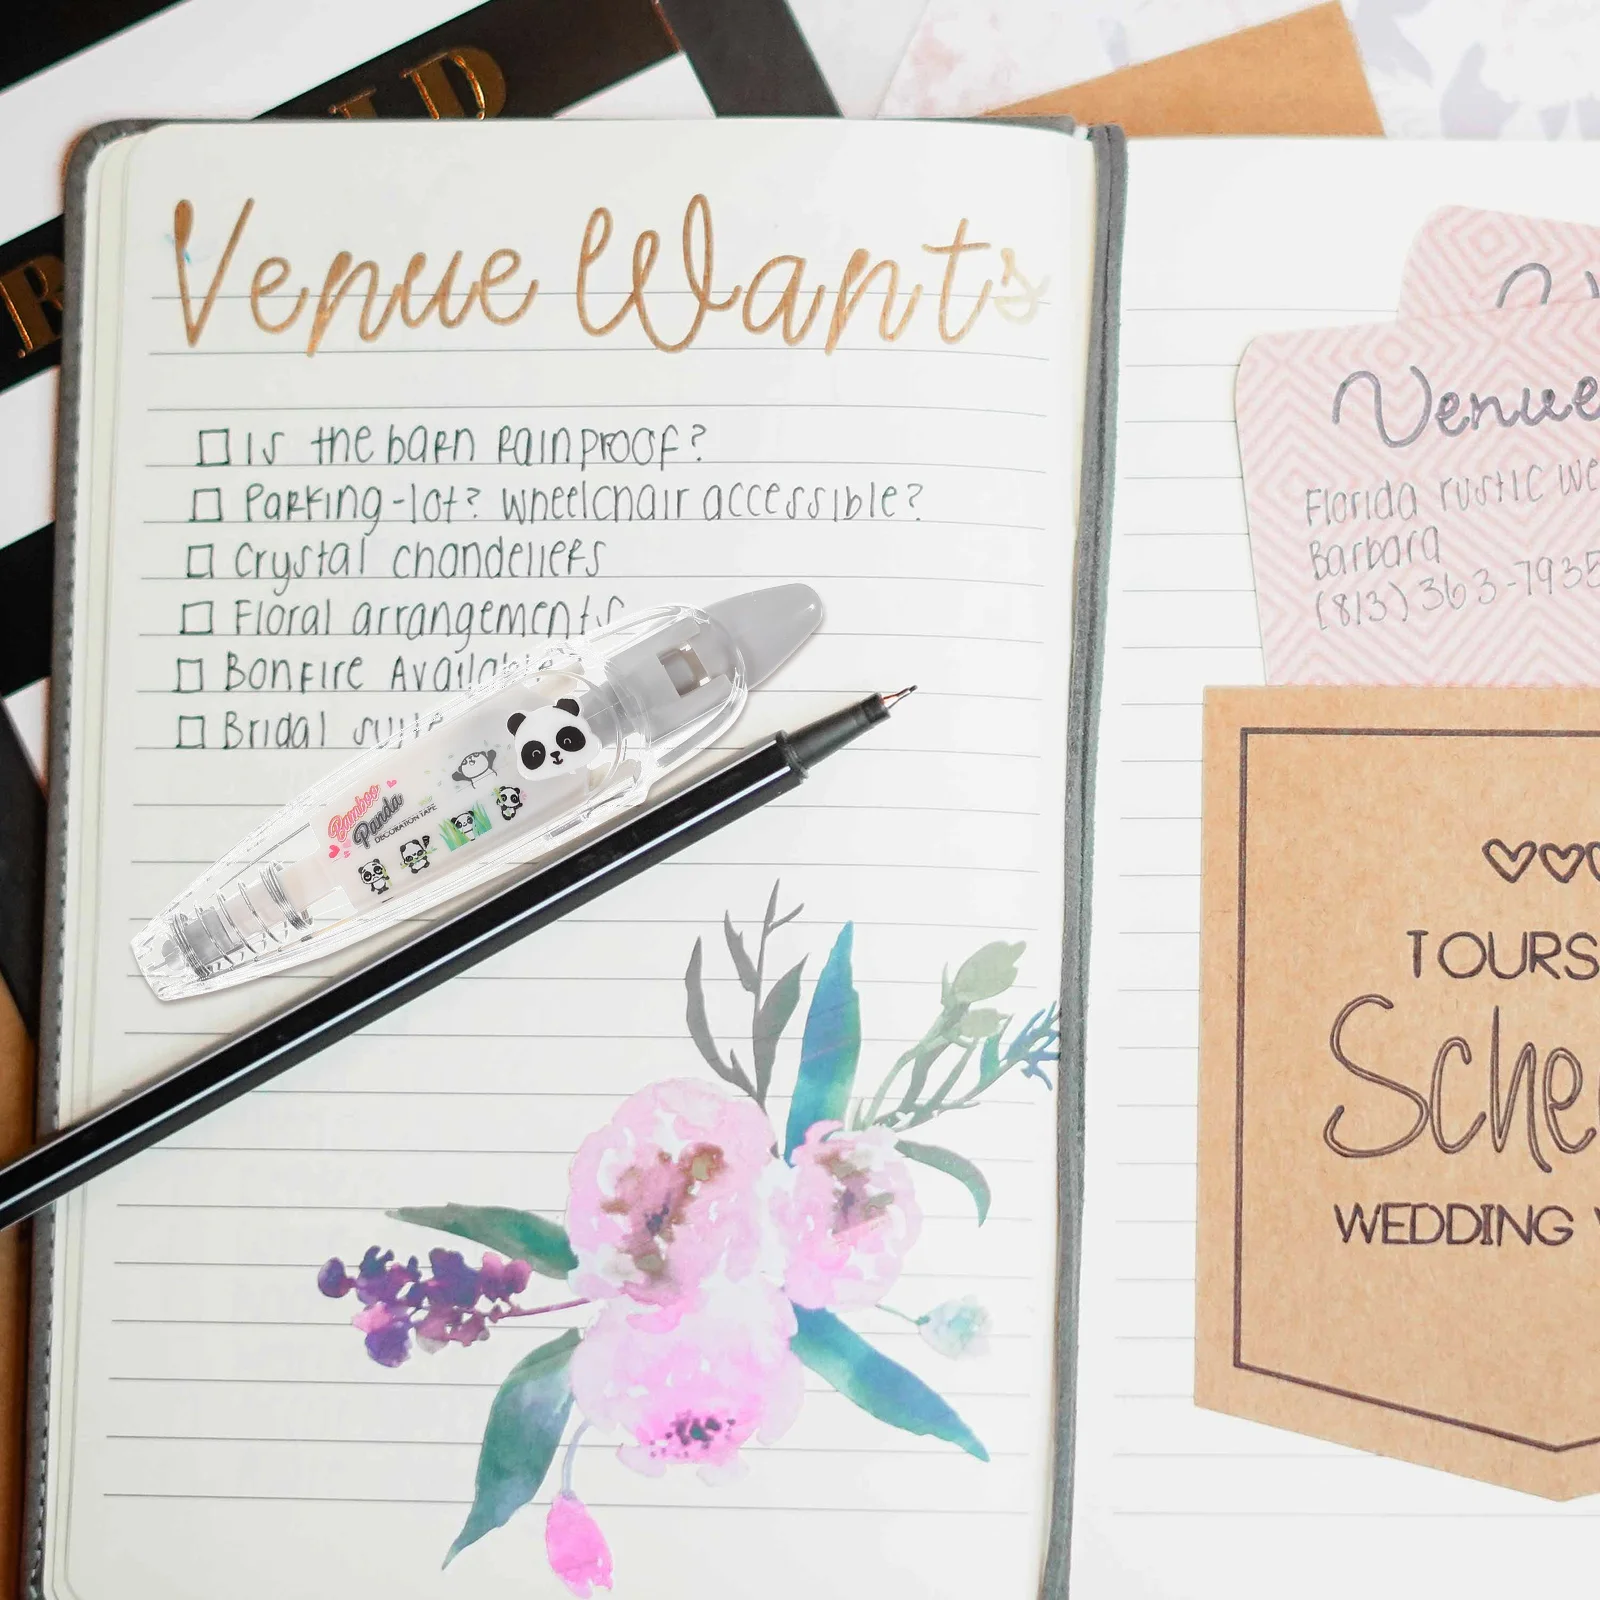 LD
R
Venue Wants
Is the barn rainproof?
Parking-lot? wheelchair accessible?
Crystal chandeliers
Floral arrangements
Bonfire
Bridal suite
Bamboo
Panda
DECORATION TAPE
Venue
Florida rustic
Barbara
(813) 363-7935
TOURS
WEDDING